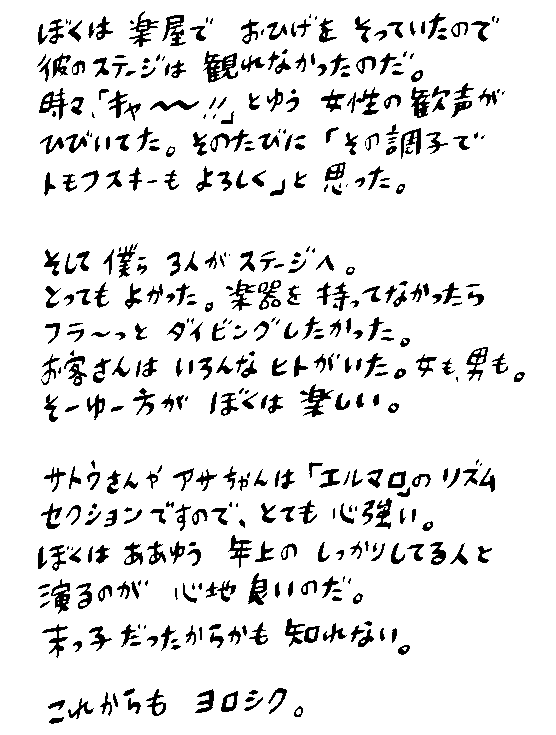 ぼくは 楽屋で おひげを そっていたので
彼のステージは 観れなかったのだ。
時々、「キャ〜〜!!」とゆう 女性の歓声が
ひびいてた。そのたびに「その調子で
トモフスキーも よろしく」と 思った。
そして 僕ら 3人が ステージへ。
とっても よかった。楽器を 持ってなかったら
フラ〜っと ダイビングしたかった。
お客さんは いろんな ヒトがいた。女も、男も。
そーゆー方が ぼくは 楽しい。
サトウさんや アサちゃんは「エルマロ」の リズム
セクションですので、とても 心強い。
ぼくは ああゆう 年上の しっかりしてる人と
演るのが 心地良いのだ。
末っ子だったからかも 知れない。
これからも ヨロシク。